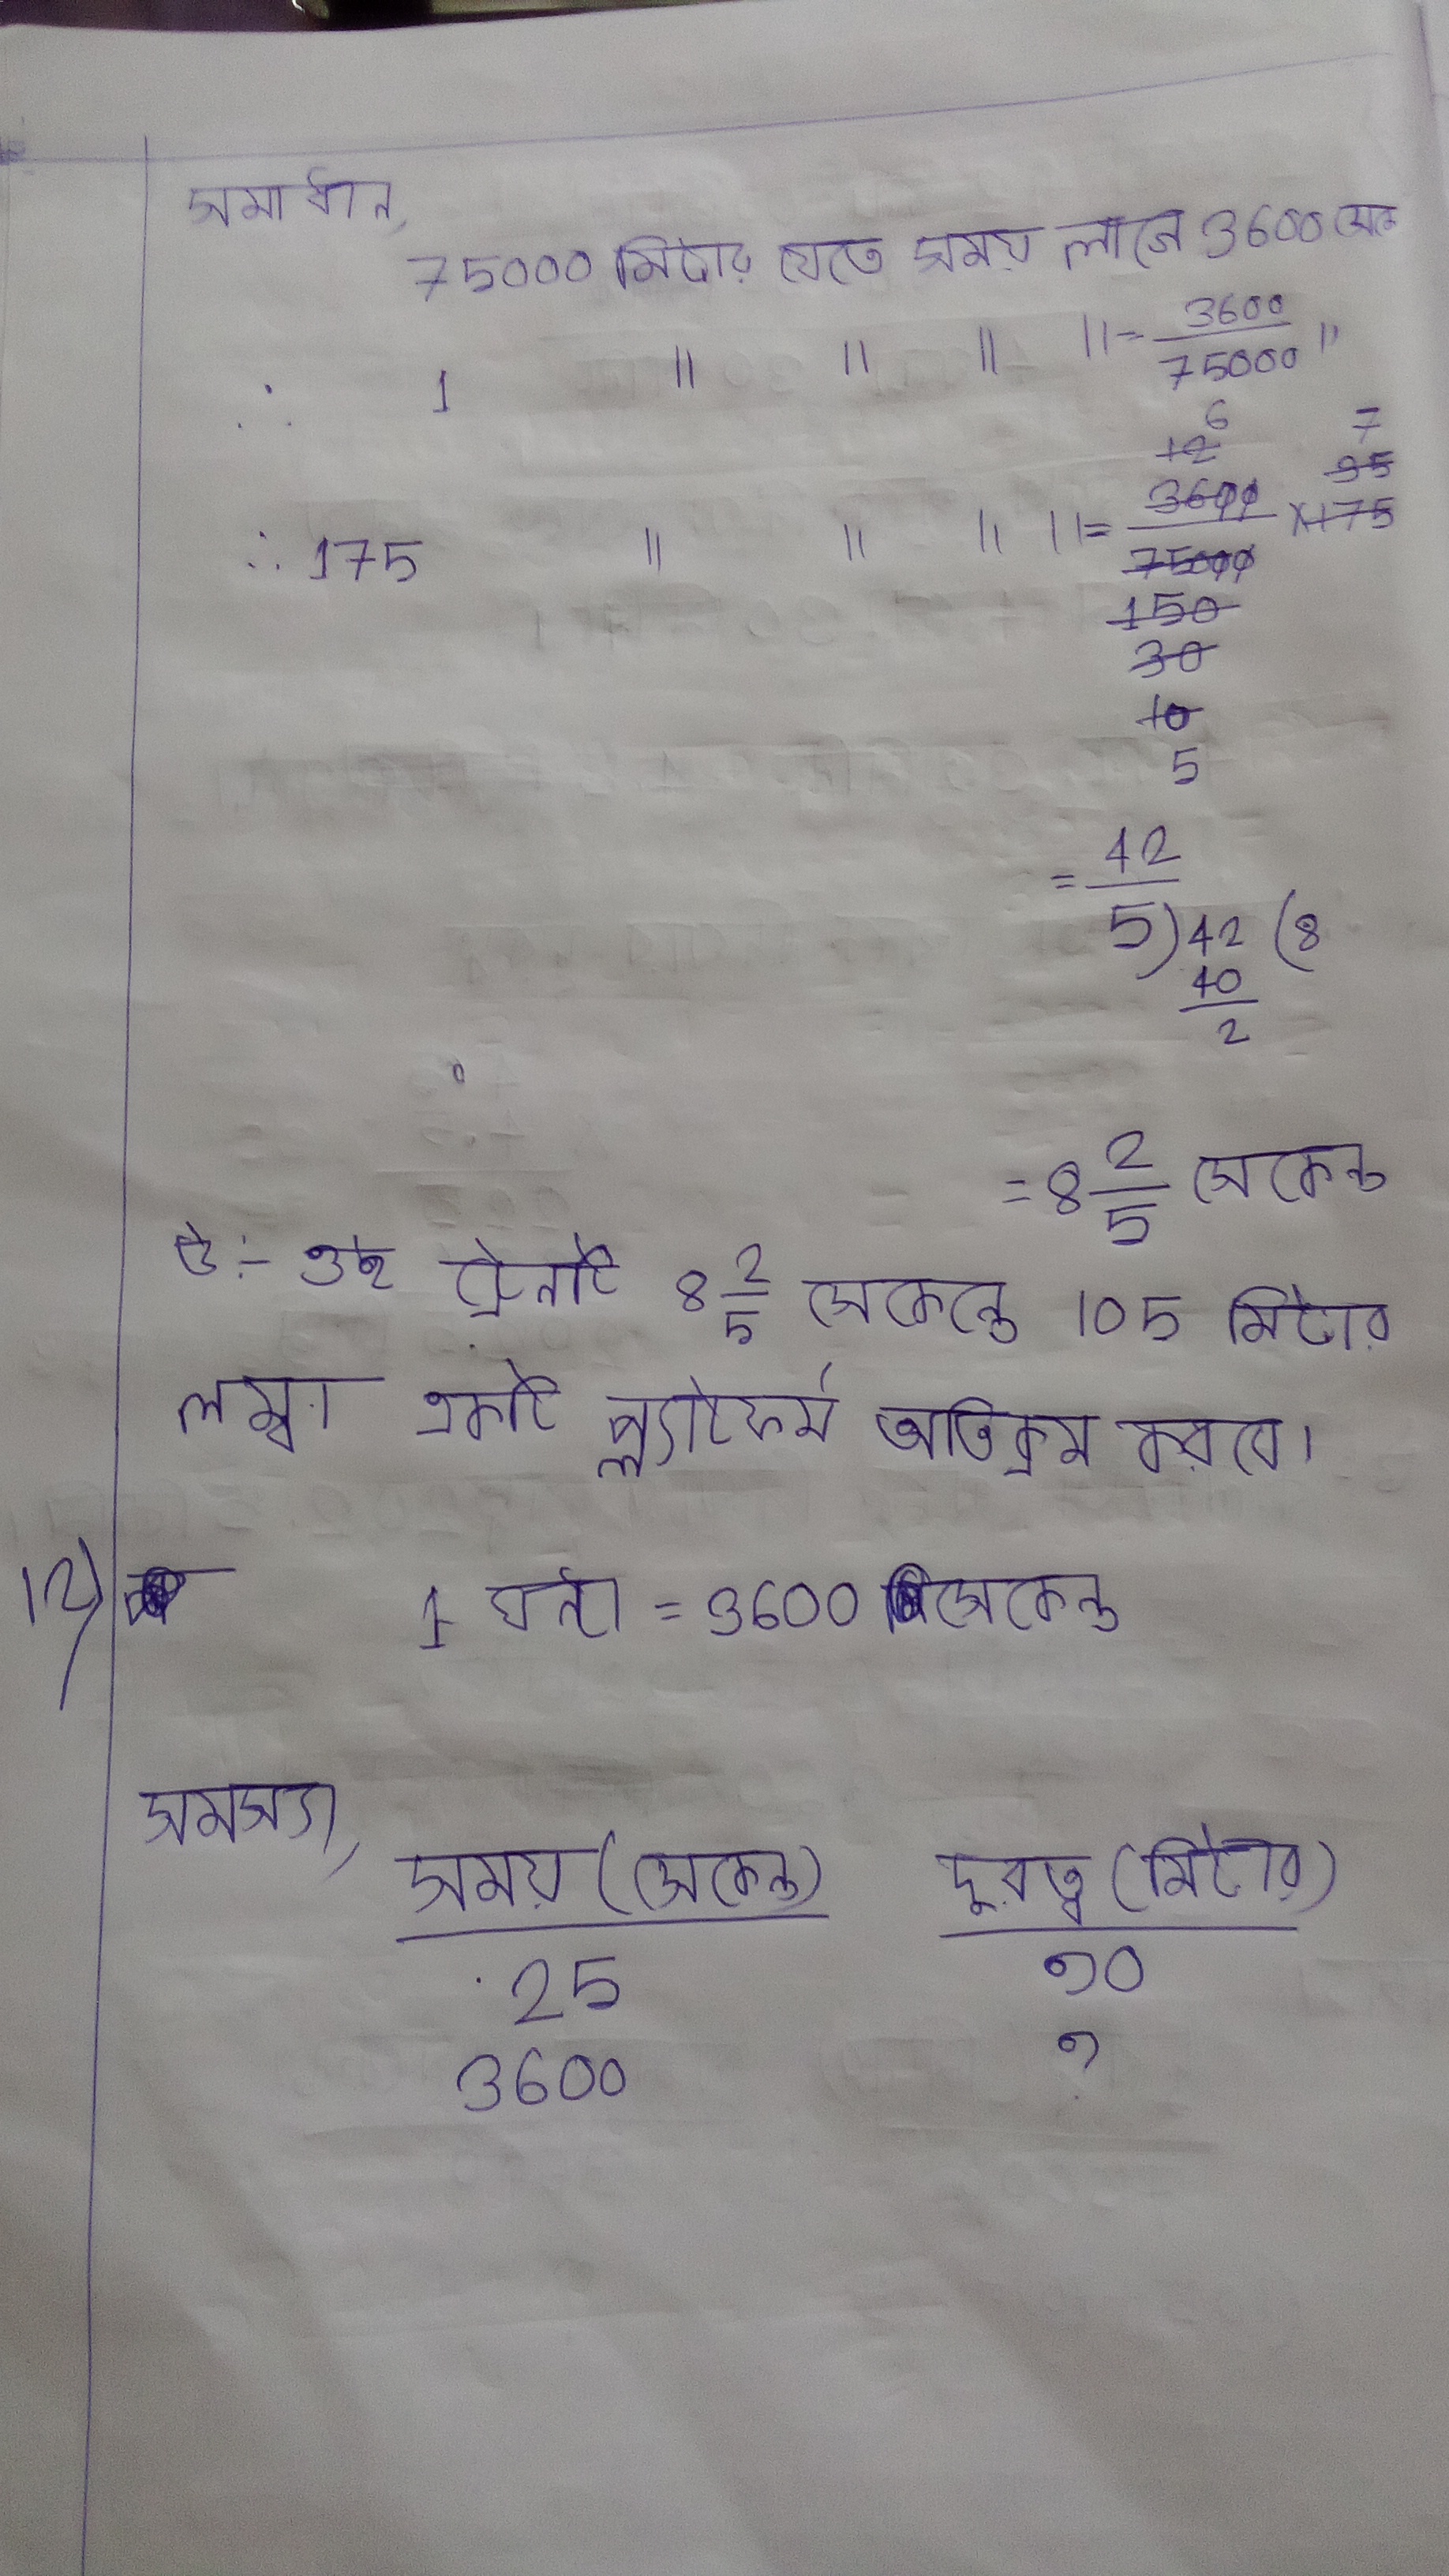 সমাধান,
75000 মিটার যেতে সময় লাগে 3600 সেকে
∴ 1 " " " " = 3600/75000 "
6 7
12 35
∴ 175 " " " " = 3600/75000 × 175
150
30
10
5
= 42/5
5)42(8
40
2
= 8 2/5 সেকেন্ড
উঃ- ওই ট্রেনটি 8 2/5 সেকেন্ডে 105 মিটার
লম্বা একটি প্ল্যাটফর্ম অতিক্রম করবে।
12) 1 ঘন্টা = 3600 সেকেন্ড
সমস্যা,
সময় (সেকেন্ড) দূরত্ব (মিটার)
25 90
3600 ?